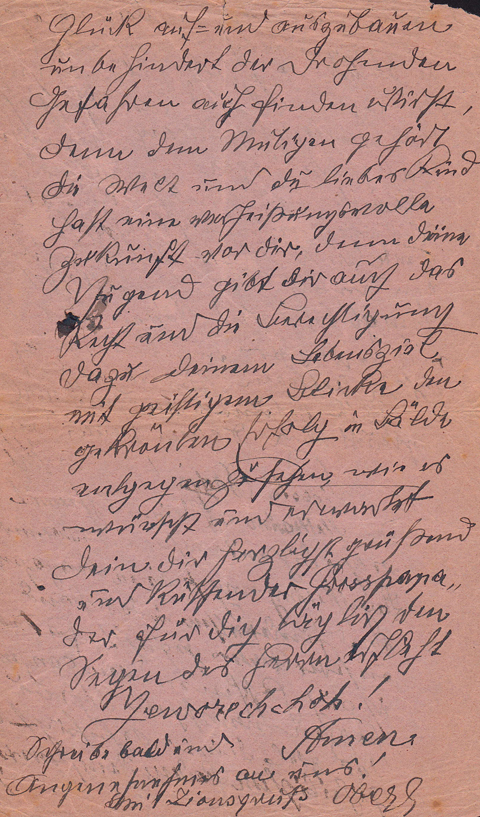 Glück auf- und auszubauen
unbehindert der drohenden
Gefahren auch finden wirst,
denn dem Mutigen gehört
die Welt und du liebes Kind
hast eine verheißungsvolle
Zukunft vor dir, denn deine
Jugend gibt dir auch das
Recht und die Berechtigung
dazu deinem Lebensziel
mit geistigem Blicke den
gekrönten Erfolg in Bälde
entgegenzusehen, wie es
wünscht und erwartet
Dein dich herzlichst grüßend
und Küssender Grosspapa,
der für dich täglich den
Segen des Herrn erfleht
Jeworechcho!
Schreibe bald und Amen.
Angenehmes an uns!
Mit Zionsgruß